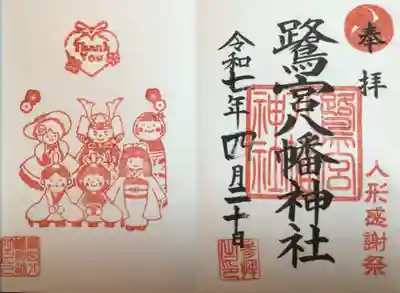 Thank
You
奉拝
鷺宮八幡神社
令和七年四月二十日
人形感謝祭
鷺宮
神社